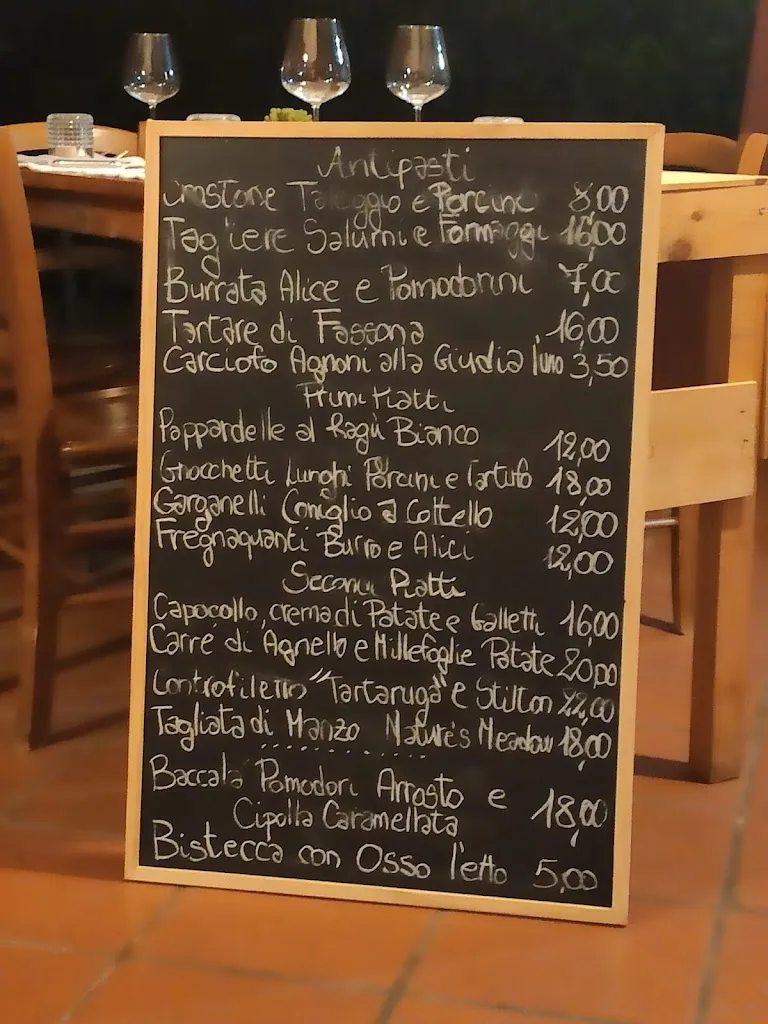 Antipasti
Taleggio e Porcini 8,00
Tagliere Salumi e Formaggi 16,00
Burrata Alice e Pomodorini 7,00
Tartare di Fassona 16,00
Carciofo Agnoni alla Giudia l'uno 3,50
Primi Piatti
Pappardelle al Ragù Bianco 12,00
Gnocchetti Lunghi Porcini e Tartufo 18,00
Garganelli Coniglio a Coltello 12,00
Fregnaquanti Burro e Alici 12,00
Secondi Piatti
Capocollo, crema di Patate e Galletti 16,00
Carré di Agnello e Millefoglie Patate 20,00
Controfiletto "Tartaruga" e Stilton 22,00
Tagliata di Manzo Nature's Meadow 18,00
Baccalà Pomodori Arrosto e
Cipolla Caramellata 18,00
Bistecca con Osso l'etto 5,00